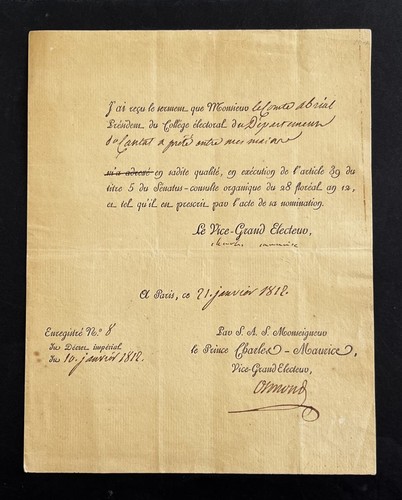 J'ai reçu le serment que Monsieur le Comte abrial
Président du Collège électoral du Département
du Cantal a prêté entre mes mains
m'a adressé en sadite qualité, en exécution de l'article 39 du
titre 5 du Senatus-consulte organique du 28 floréal an 12,
et tel qu'il en prescrit par l'acte de sa nomination.
Le Vice-Grand Electeur,
charles maurice
A Paris, ce 21 janvier 1812.
Enregistré N.° 8
Du Décret impérial
Du 10. janvier 1812.
Par S. A. S. Monseigneur
le Prince Charles-Maurice,
Vice-Grand Electeur,